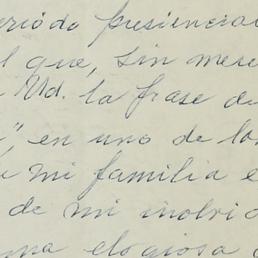 eriodo presiencia
l que, sin mere
Ud. la frase de
", en uno de lo
mi familia e
de mi inolvid
una elogiosa